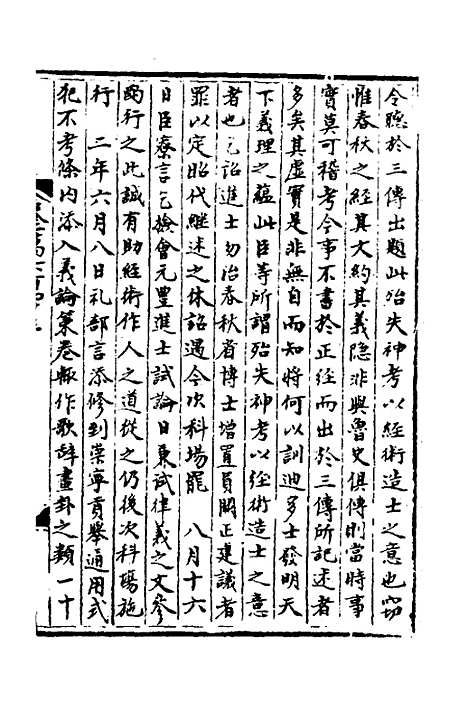 令聽於三傳出題此殆失神考以經術造士之意也竊
惟春秋之經其文約其義隱非與魯史俱傳則當時事
實莫可稽考今事不書於正經而出於三傳所記述者
多矣其虛實是非無自而知將何以訓迪多士發明天
下義理之蘊此臣等所謂殆失神考以經術造士之意
者也乞詔進士勿治春秋省博士增置員闕正建議者
罪以定昭代継述之休詔遇今次科場罷　八月十六
日臣寮言乞檢會元豐進士試論日兼試律義之文參
酌行之此誠有助經術作人之道從之仍後次科場施
行　二年六月八日礼部言添修到崇寧貢舉通用式
犯不考條内添入義論策卷輒作歌辭畫卦之類一十